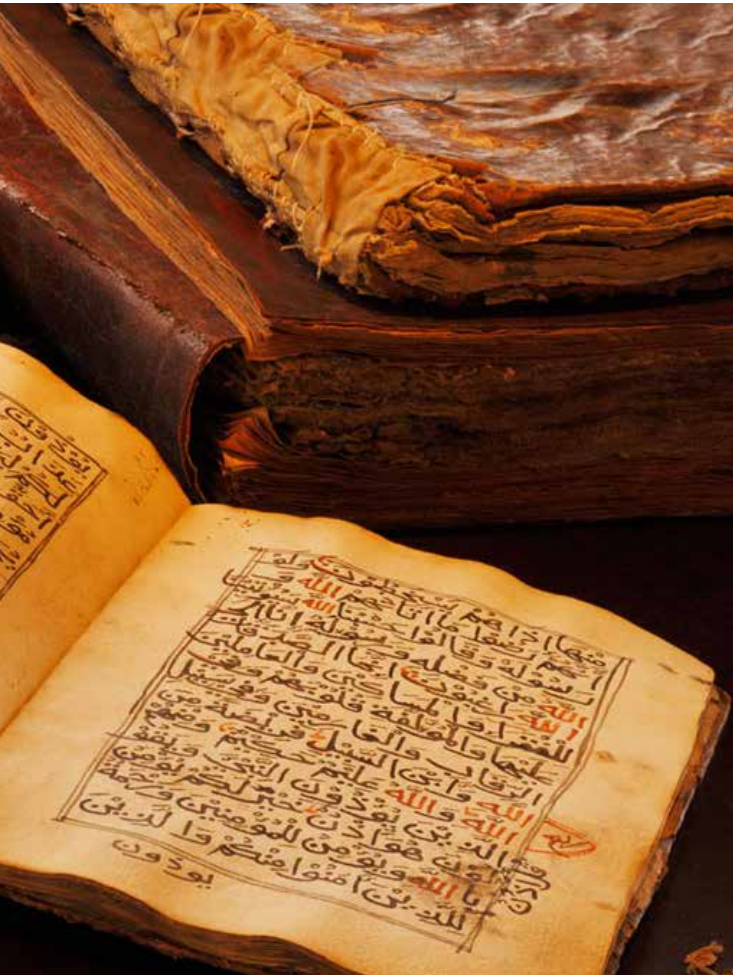 منها اذا هم يسخطون ولو
انهم رضوا ما اتاهم الله و
رسوله وقالوا حسبنا الله
الله من فضله ورسوله انا الى
الله راغبون انما الصدقات
للفقراء والمساكين والعاملين
عليها والمولفة قلوبهم وفي
الرقاب والغارمين وفي سبيل
الله وابن السبيل فريضة من
الله والله عليم حكيم ومنهم
الذين يوذون النبي ويقولون
هو اذن خير لكم يومن
بالله ويومن للمومنين ورحمة
للذين امنوا منكم والذين
قل اذن
يوذون